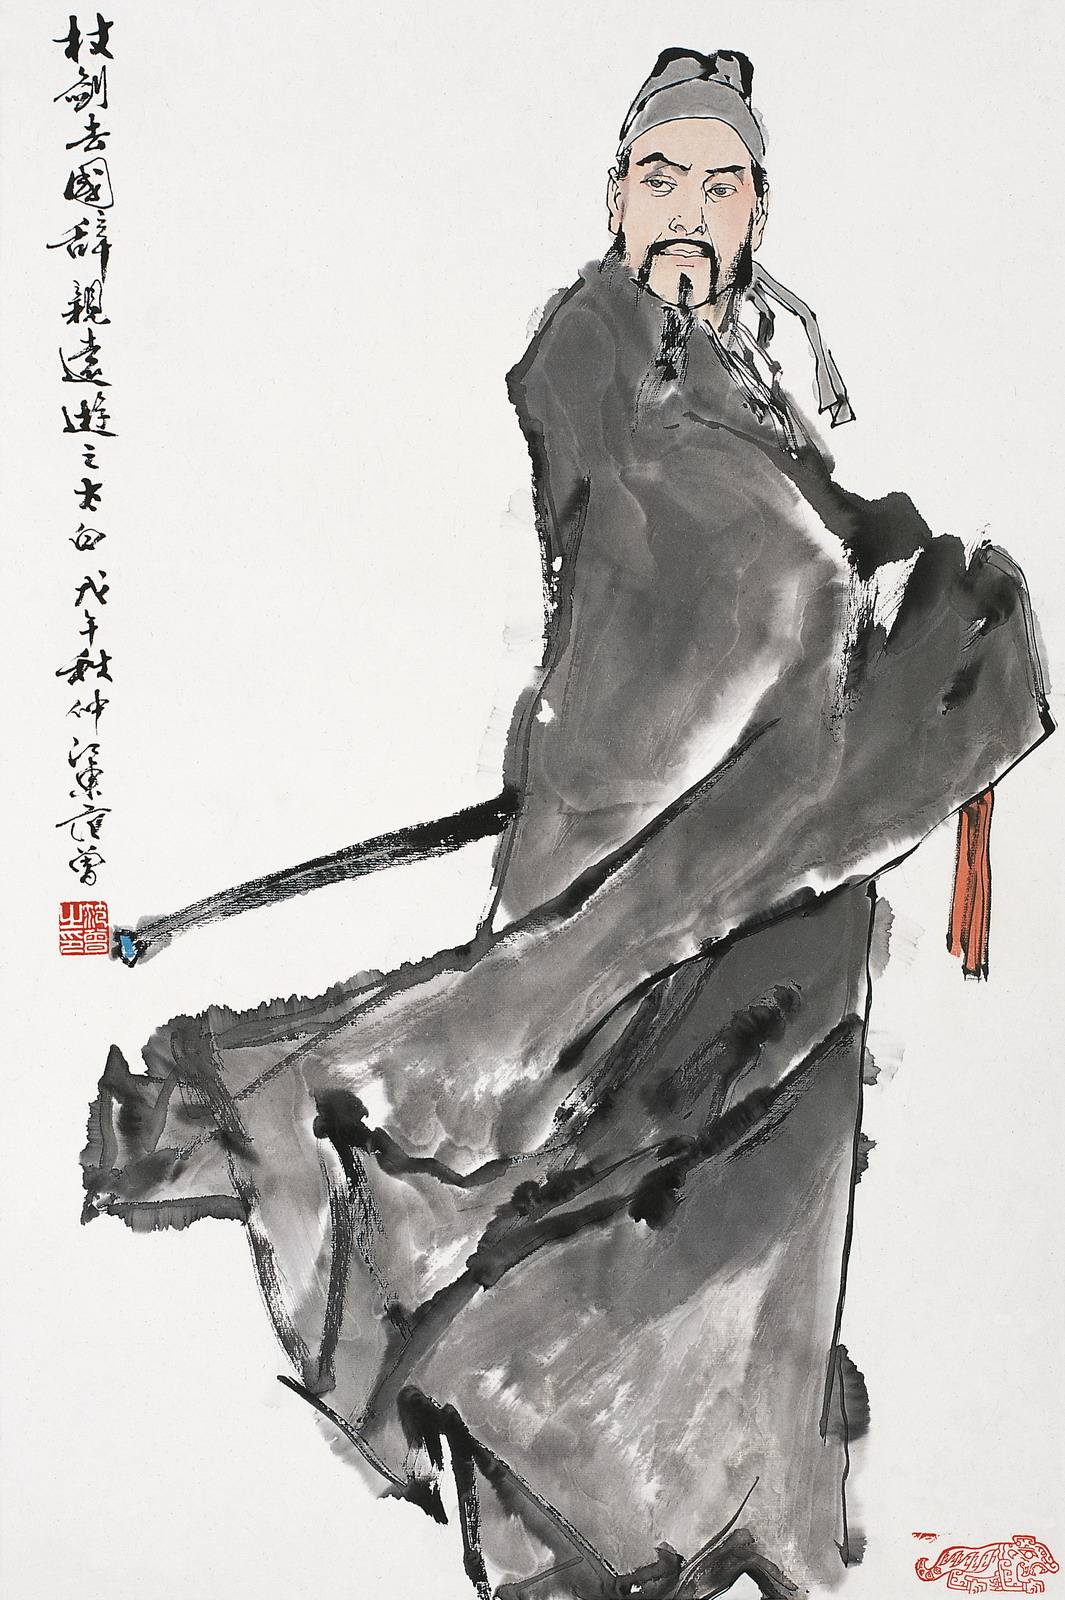 杖劍去國辞親遠遊之太白戊午秋仲江東范曾
范曾之印